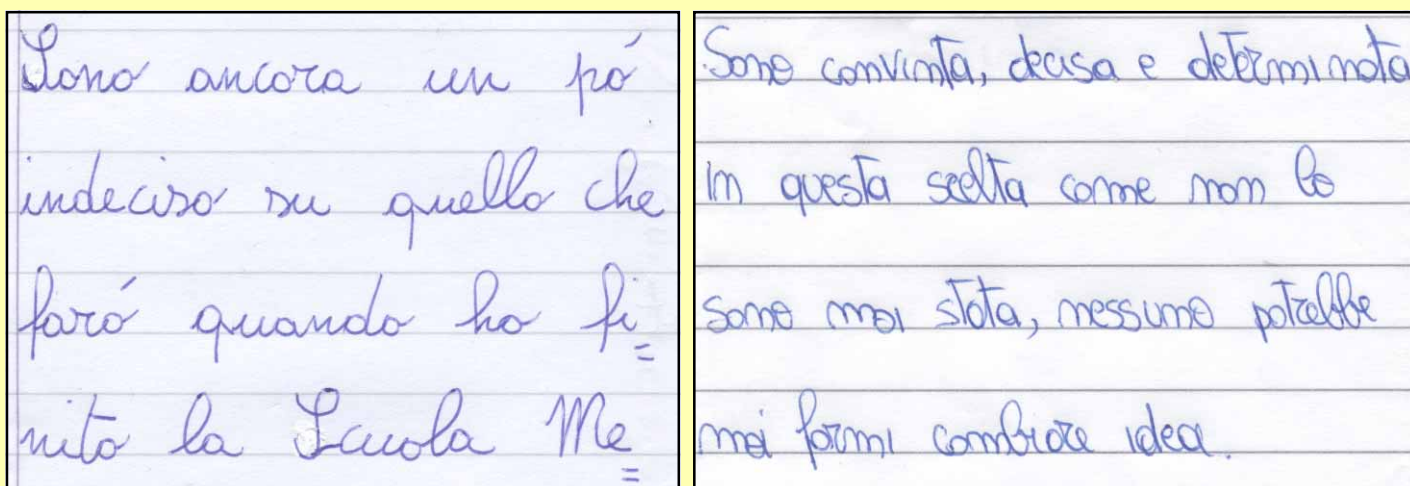 Sono ancora un pó
indeciso su quello che
faró quando ho fi=
nito la Scuola Me=
Sono convinta, decisa e determinata
in questa scelta come non lo
sono mai stata, nessuno potrebbe
mai farmi cambiare idea.